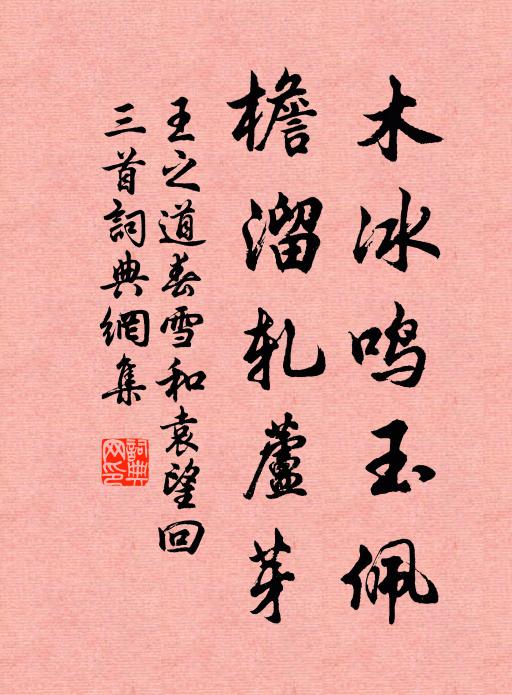 木冰鸣玉佩
檐溜轧蘆芽
王之道春雪和袁望回
三首詞典網集
詞典网印